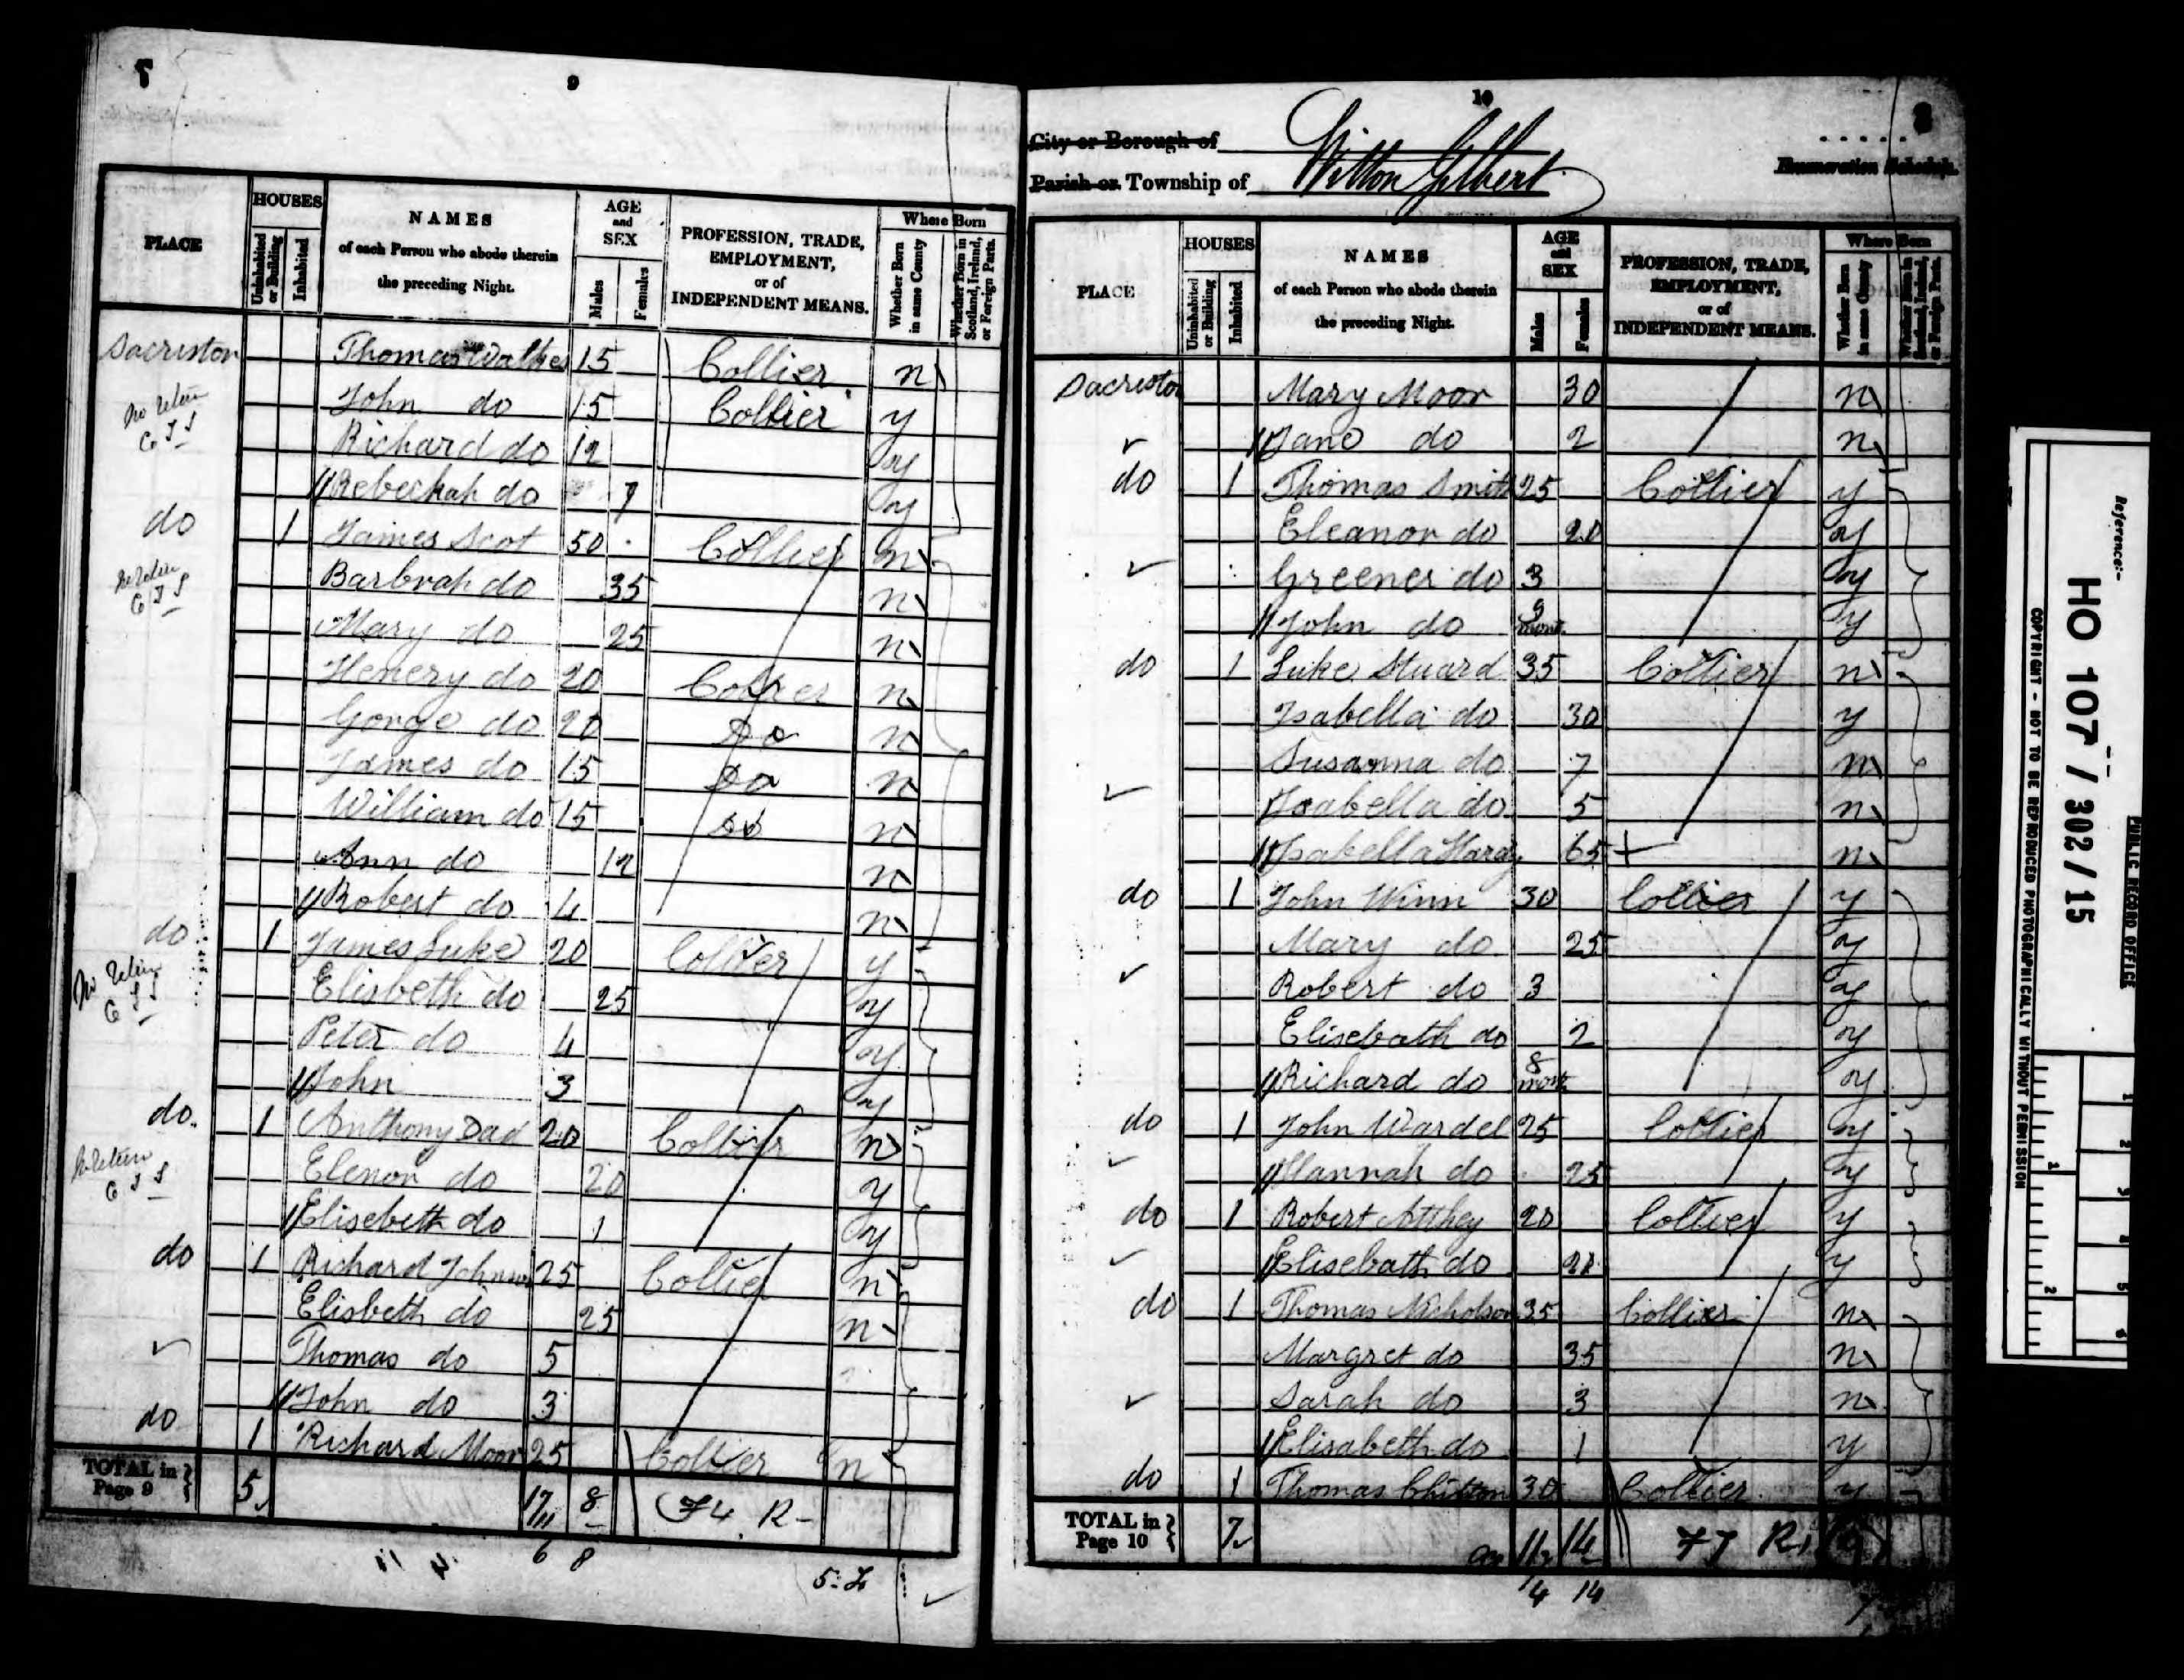 7
9
HOUSES
NAMES
AGE and SEX
PROFESSION, TRADE, EMPLOYMENT, or of INDEPENDENT MEANS.
Where Born
PLACE
Uninhabited or Building
Inhabited
of each Person who abode therein the preceding Night.
Males
Females
Whether Born in same County
Whether Born in Scotland, Ireland, or Foreign Parts.
Sacriston Thomas 15 Collier n
John do 15 Collier y
Richard do 12 y
Rebeckah do 7 y
do 1 James Scot 50 Collier n
Barbrah do 35 n
Mary do 25 n
Henery do 20 n
Gorge do 20 Do n
James do 15 Do n
William do 15 Do n
Ann do 12 n
Robert do 4 n
do 1 James Luke 20 Collier y
Elisbeth do 25 y
Peter do 4 y
John 3 y
do 1 Anthony Dad 20 Collier n
Elenor do 20 y
Elisebeth do 1 y
do 1 Richard 25 Collier n
Elisbeth do 25 n
Thomas do 5
John do 3
do 1 Richard Moor 25 Collier n
TOTAL in Page 9 5 17 8
11
6 8
10
8
City or Borough of
Parish or Township of Witton Gilbert
Enumeration Schedule.
HOUSES
NAMES
AGE and SEX
PROFESSION, TRADE, EMPLOYMENT, or of INDEPENDENT MEANS.
Where Born
PLACE
Uninhabited or Building
Inhabited
of each Person who abode therein the preceding Night.
Males
Females
Whether Born in same County
Whether Born in Scotland, Ireland, or Foreign Parts.
Sacriston Mary Moor 30 n
Jane do 2 n
do 1 Thomas Smith 25 Collier y
Eleanor do 20 y
Greener do 3 y
John do 9 mont y
do 1 Luke Stuard 35 Collier n
Isabella do 30 y
Susanna do 7 n
Isabella do 5 n
Isabella Hardy 65 n
do 1 John Winn 30 Collier y
Mary do 25 y
Robert do 3 y
Elisebath do 2 y
Richard do 8 mont y
do 1 John Wardel 25 Collier y
Hannah do 25 y
do 1 Robert Atthey 20 Collier y
Elisebath do y
do 1 Thomas Nicholson 35 Collier n
Margret do 35 n
Sarah do 3 n
Elisabeth do 1 y
do 1 Thomas 30 Collier y
TOTAL in Page 10 7 11 14
14
Reference:-
HO 107 / 302 / 15
PUBLIC RECORD OFFICE
COPYRIGHT - NOT TO BE REPRODUCED PHOTOGRAPHICALLY WITHOUT PERMISSION
1
2
1
2
3
4
5
6